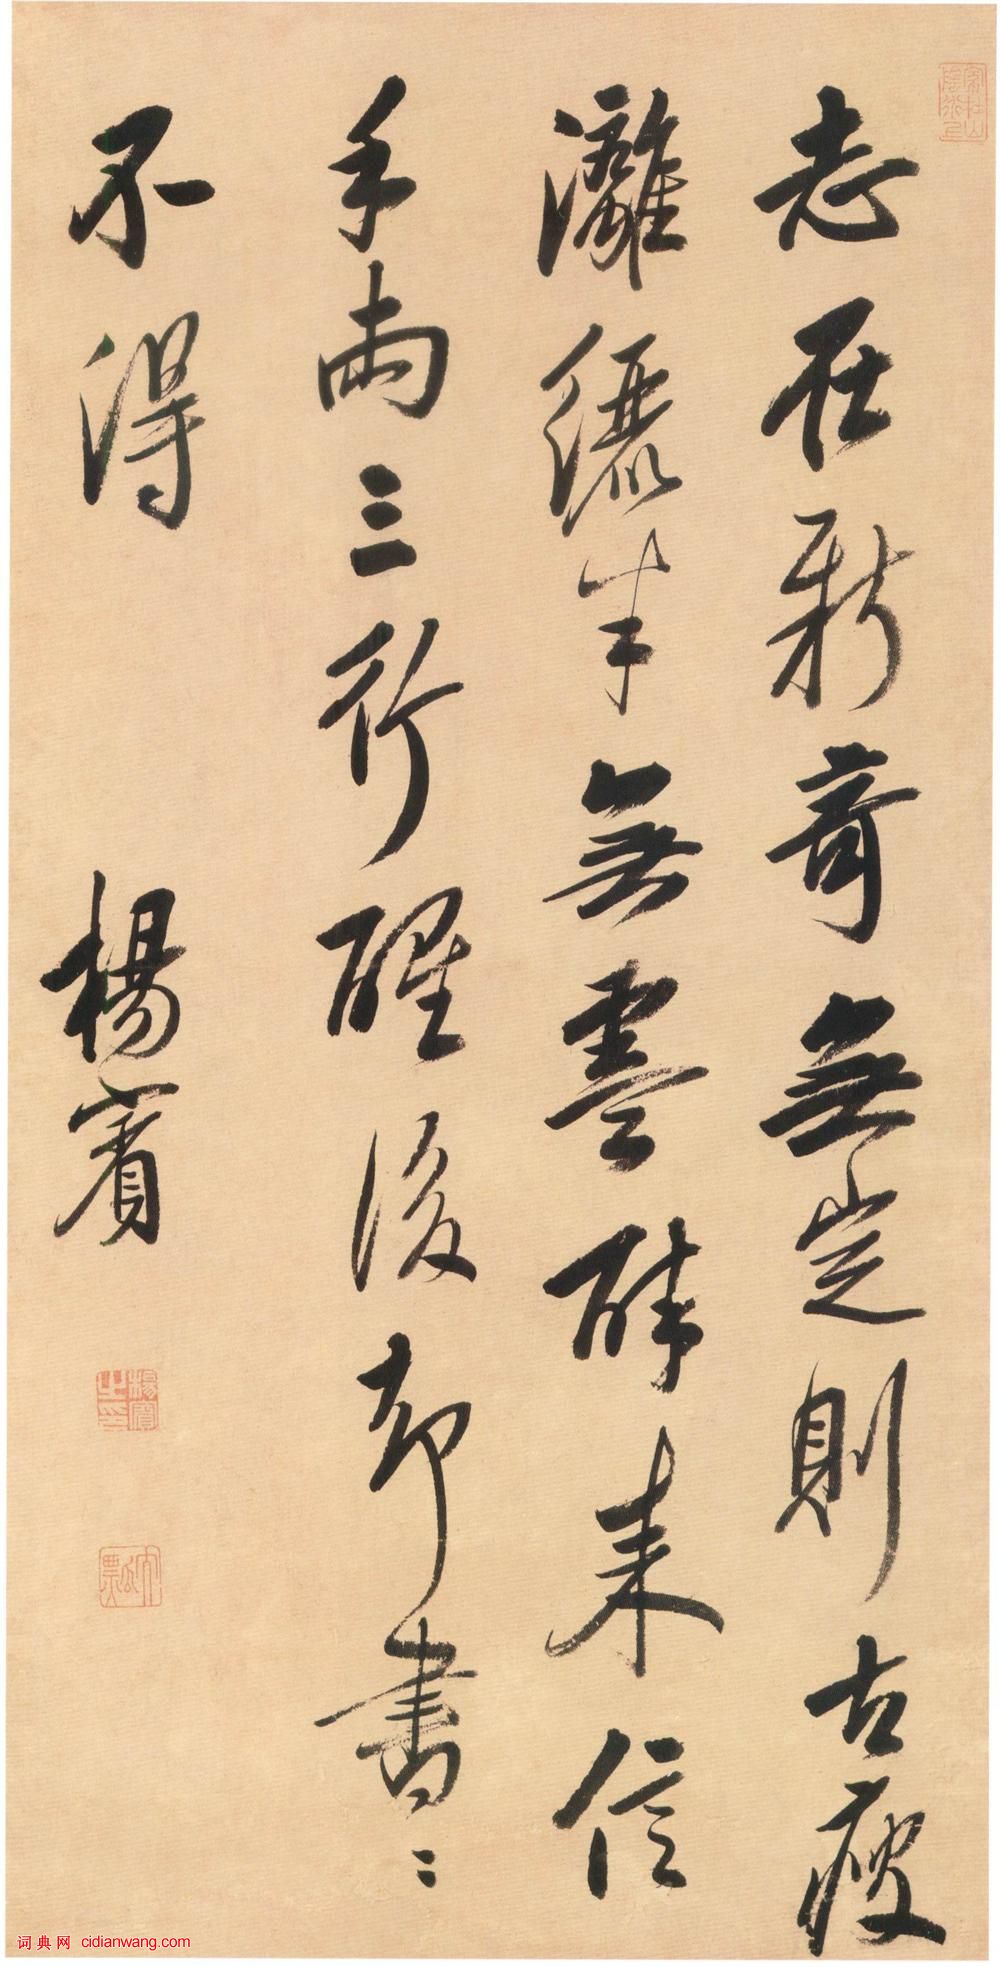 志在新奇無定則古瘦
灕纚半無墨醉来信
手兩三行醒後却書〻
不得
楊賓
楊賓之印
大瓢
词典网 cidianwang.com